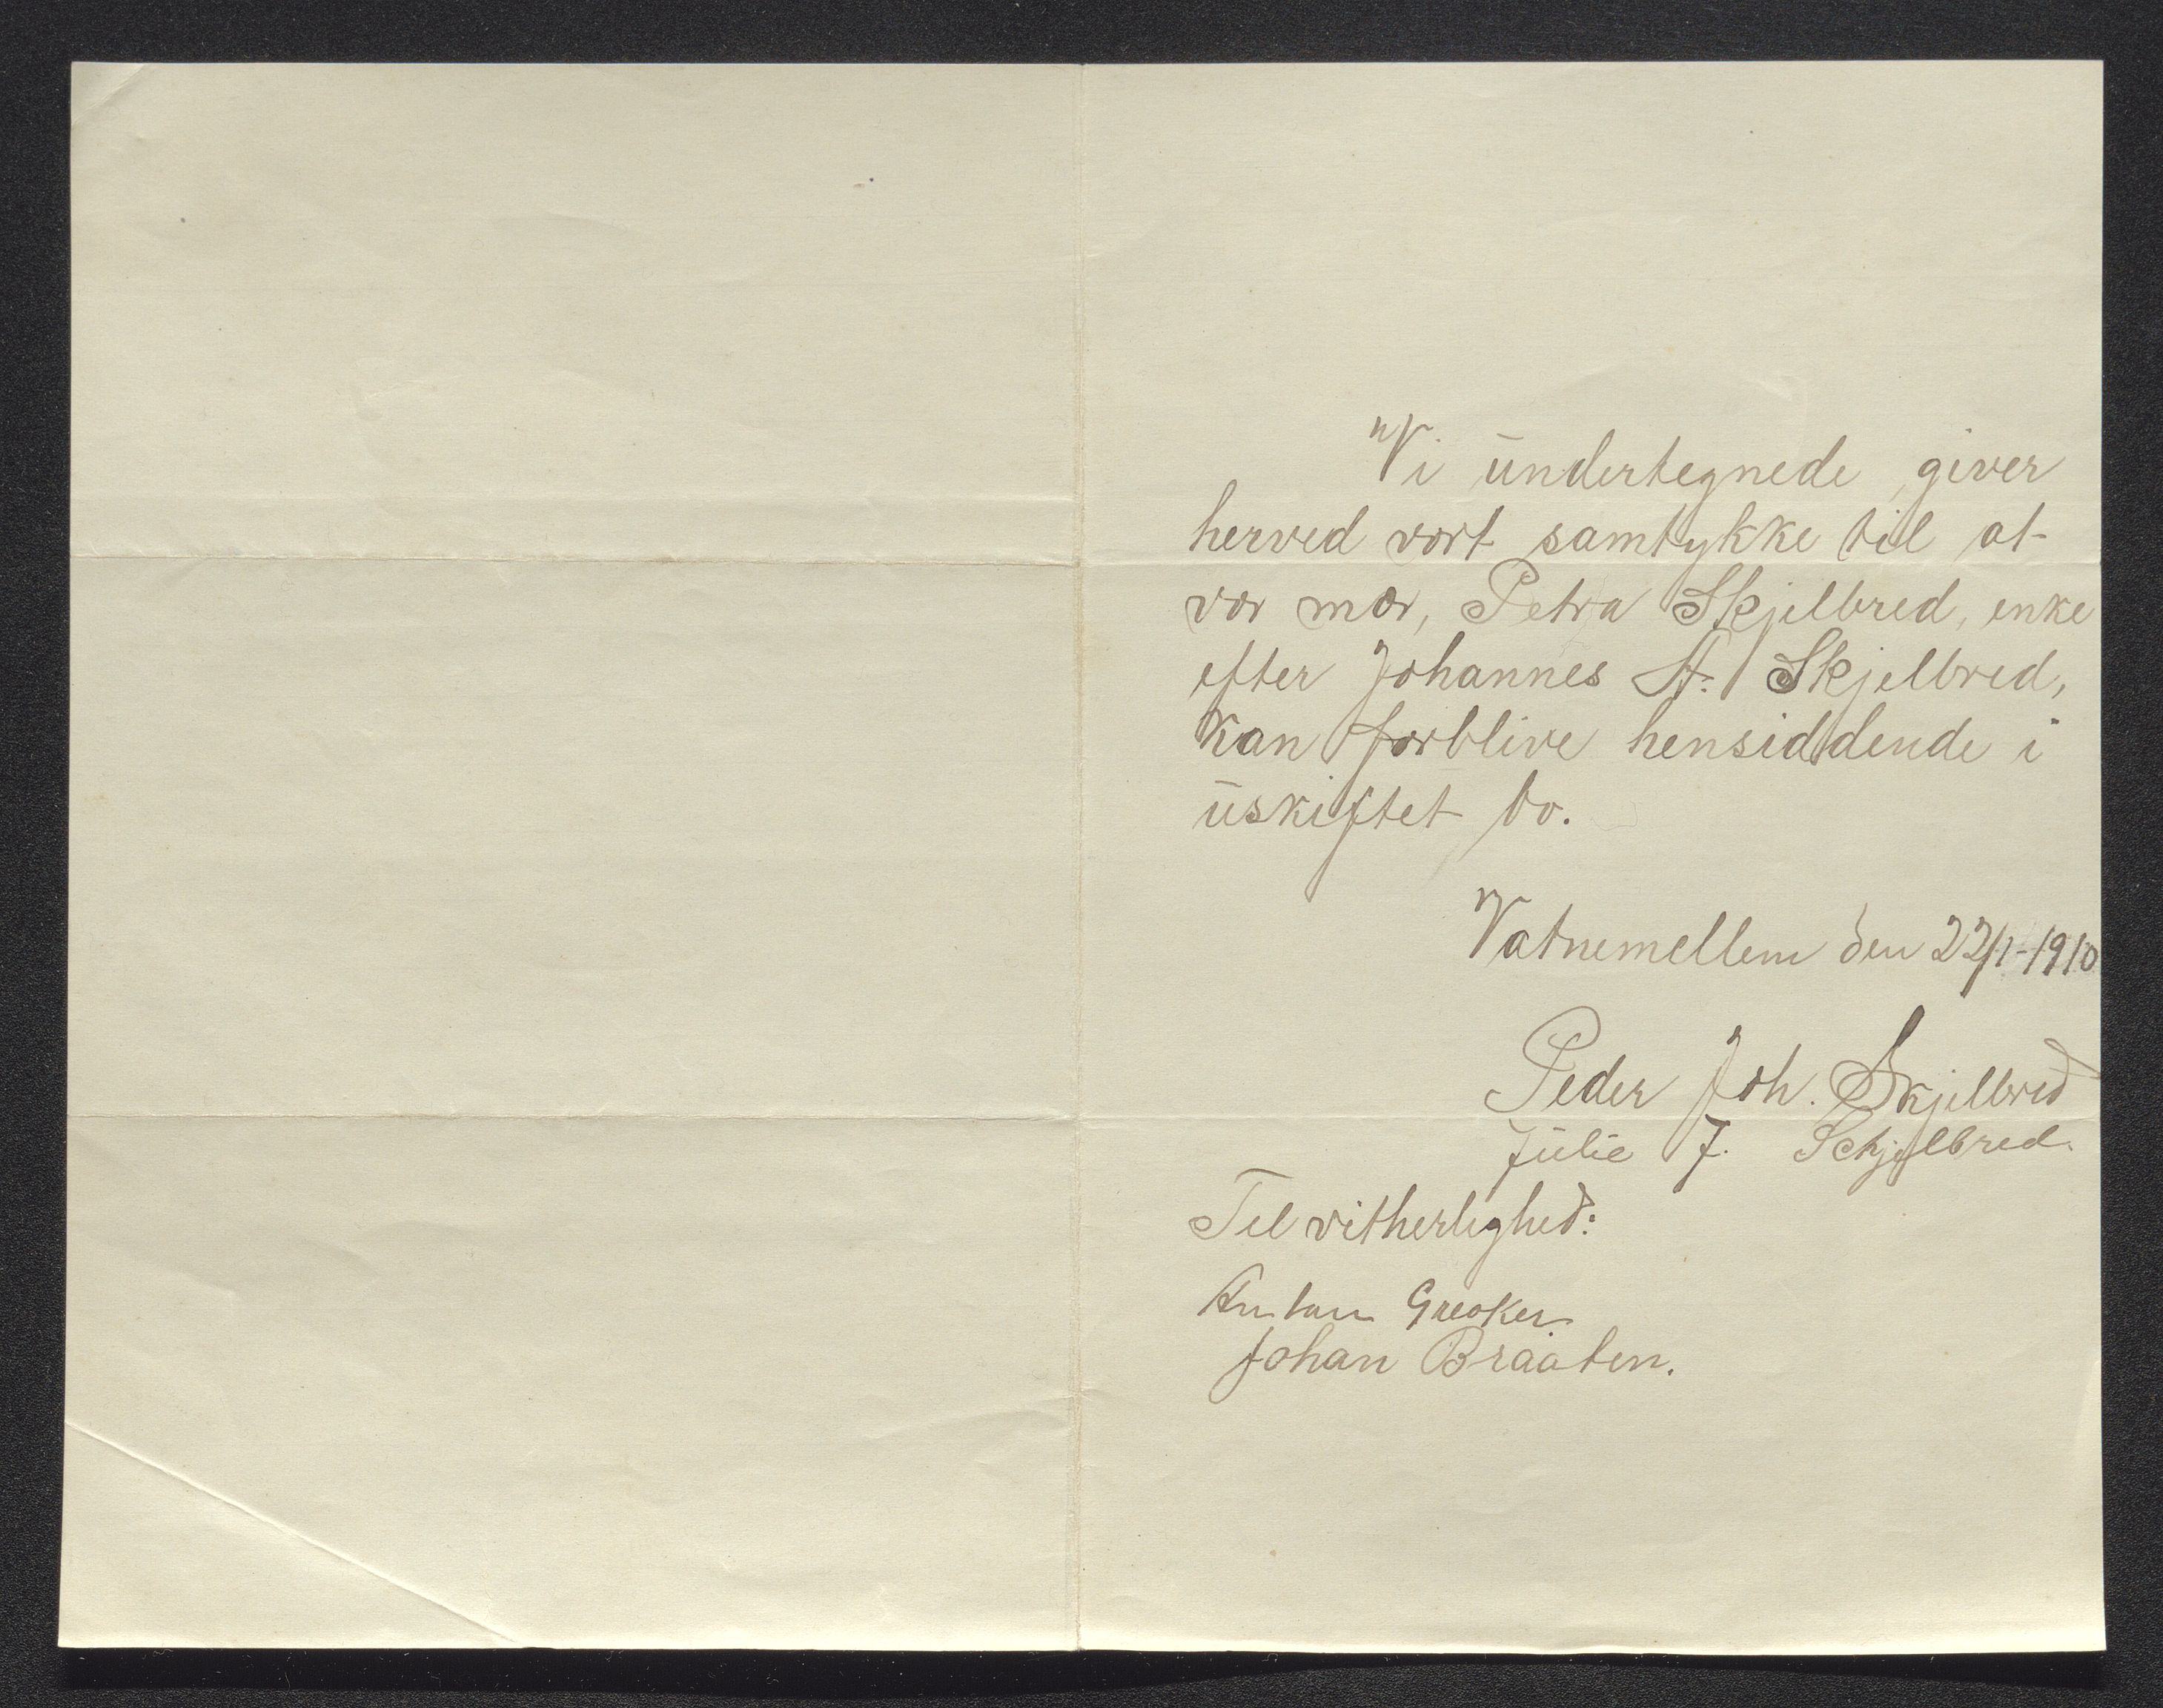 Vi undertegnede giver
herved vort samtykke til at
vor mor, Petra Skjelbred, enke
efter Johannes A. Skjelbred,
kan forblive hensiddende i
uskiftet bo.
Vatnemellem den 22/1-1910
Peder Joh. Skjelbred
Julie J. Schjelbred.
Til vitherlighed:
Anton
Johan Braaten.